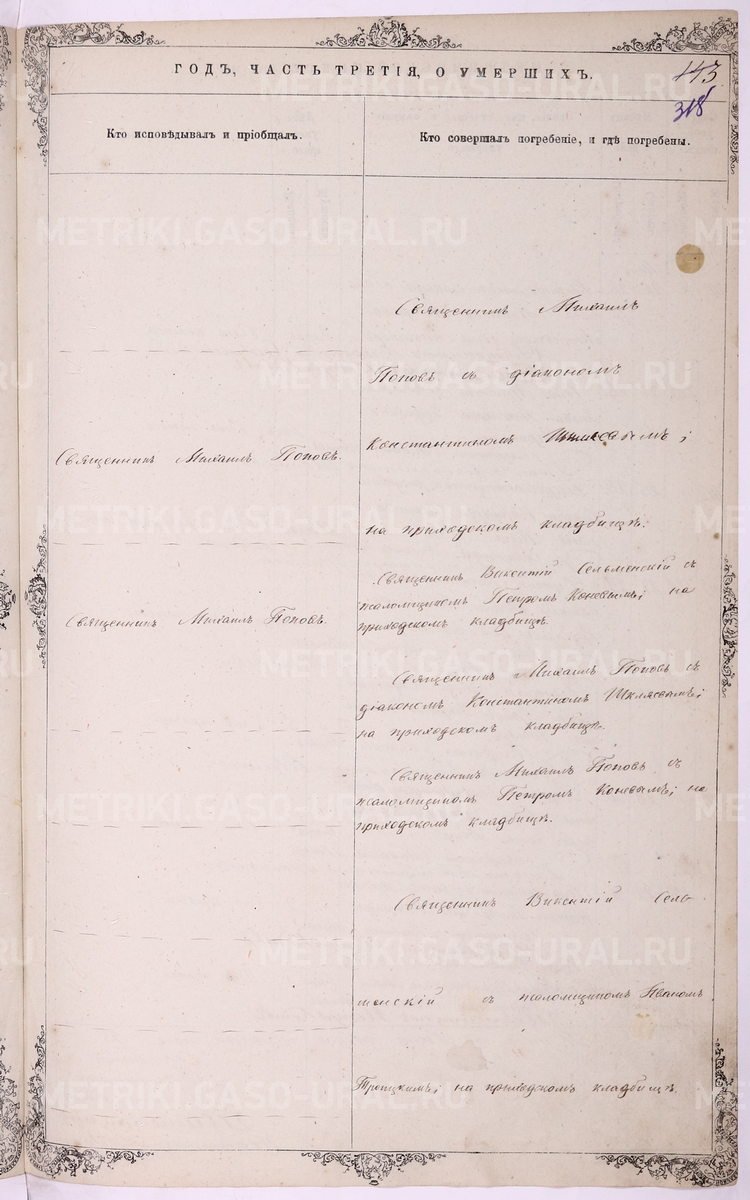 ГОДЪ, ЧАСТЬ ТРЕТІЯ, О УМЕРШИХЪ.
143
318
Кто исповѣдывалъ и пріобщалъ.
Кто совершалъ погребеніе, и гдѣ погребены.
Священникъ Михаилъ Поповъ.
Священникъ Михаилъ Поповъ.
Священникъ Михаилъ
Поповъ съ діакономъ
Константиномъ Шкляевымъ;
на приходскомъ кладбищѣ.
Священникъ Викентій Сельменскій съ
псаломщикомъ Петромъ Коневымъ; на
приходскомъ кладбищѣ.
Священникъ Михаилъ Поповъ съ
діакономъ Константиномъ Шкляевымъ;
на приходскомъ кладбищѣ.
Священникъ Михаилъ Поповъ съ
псаломщикомъ Петромъ Коневымъ; на
приходскомъ кладбищѣ.
Священникъ Викентій Сель-
менскій съ псаломщикомъ Иваномъ
Троицкимъ; на приходскомъ кладбищѣ.
METRIKI.GASO-URAL.RU